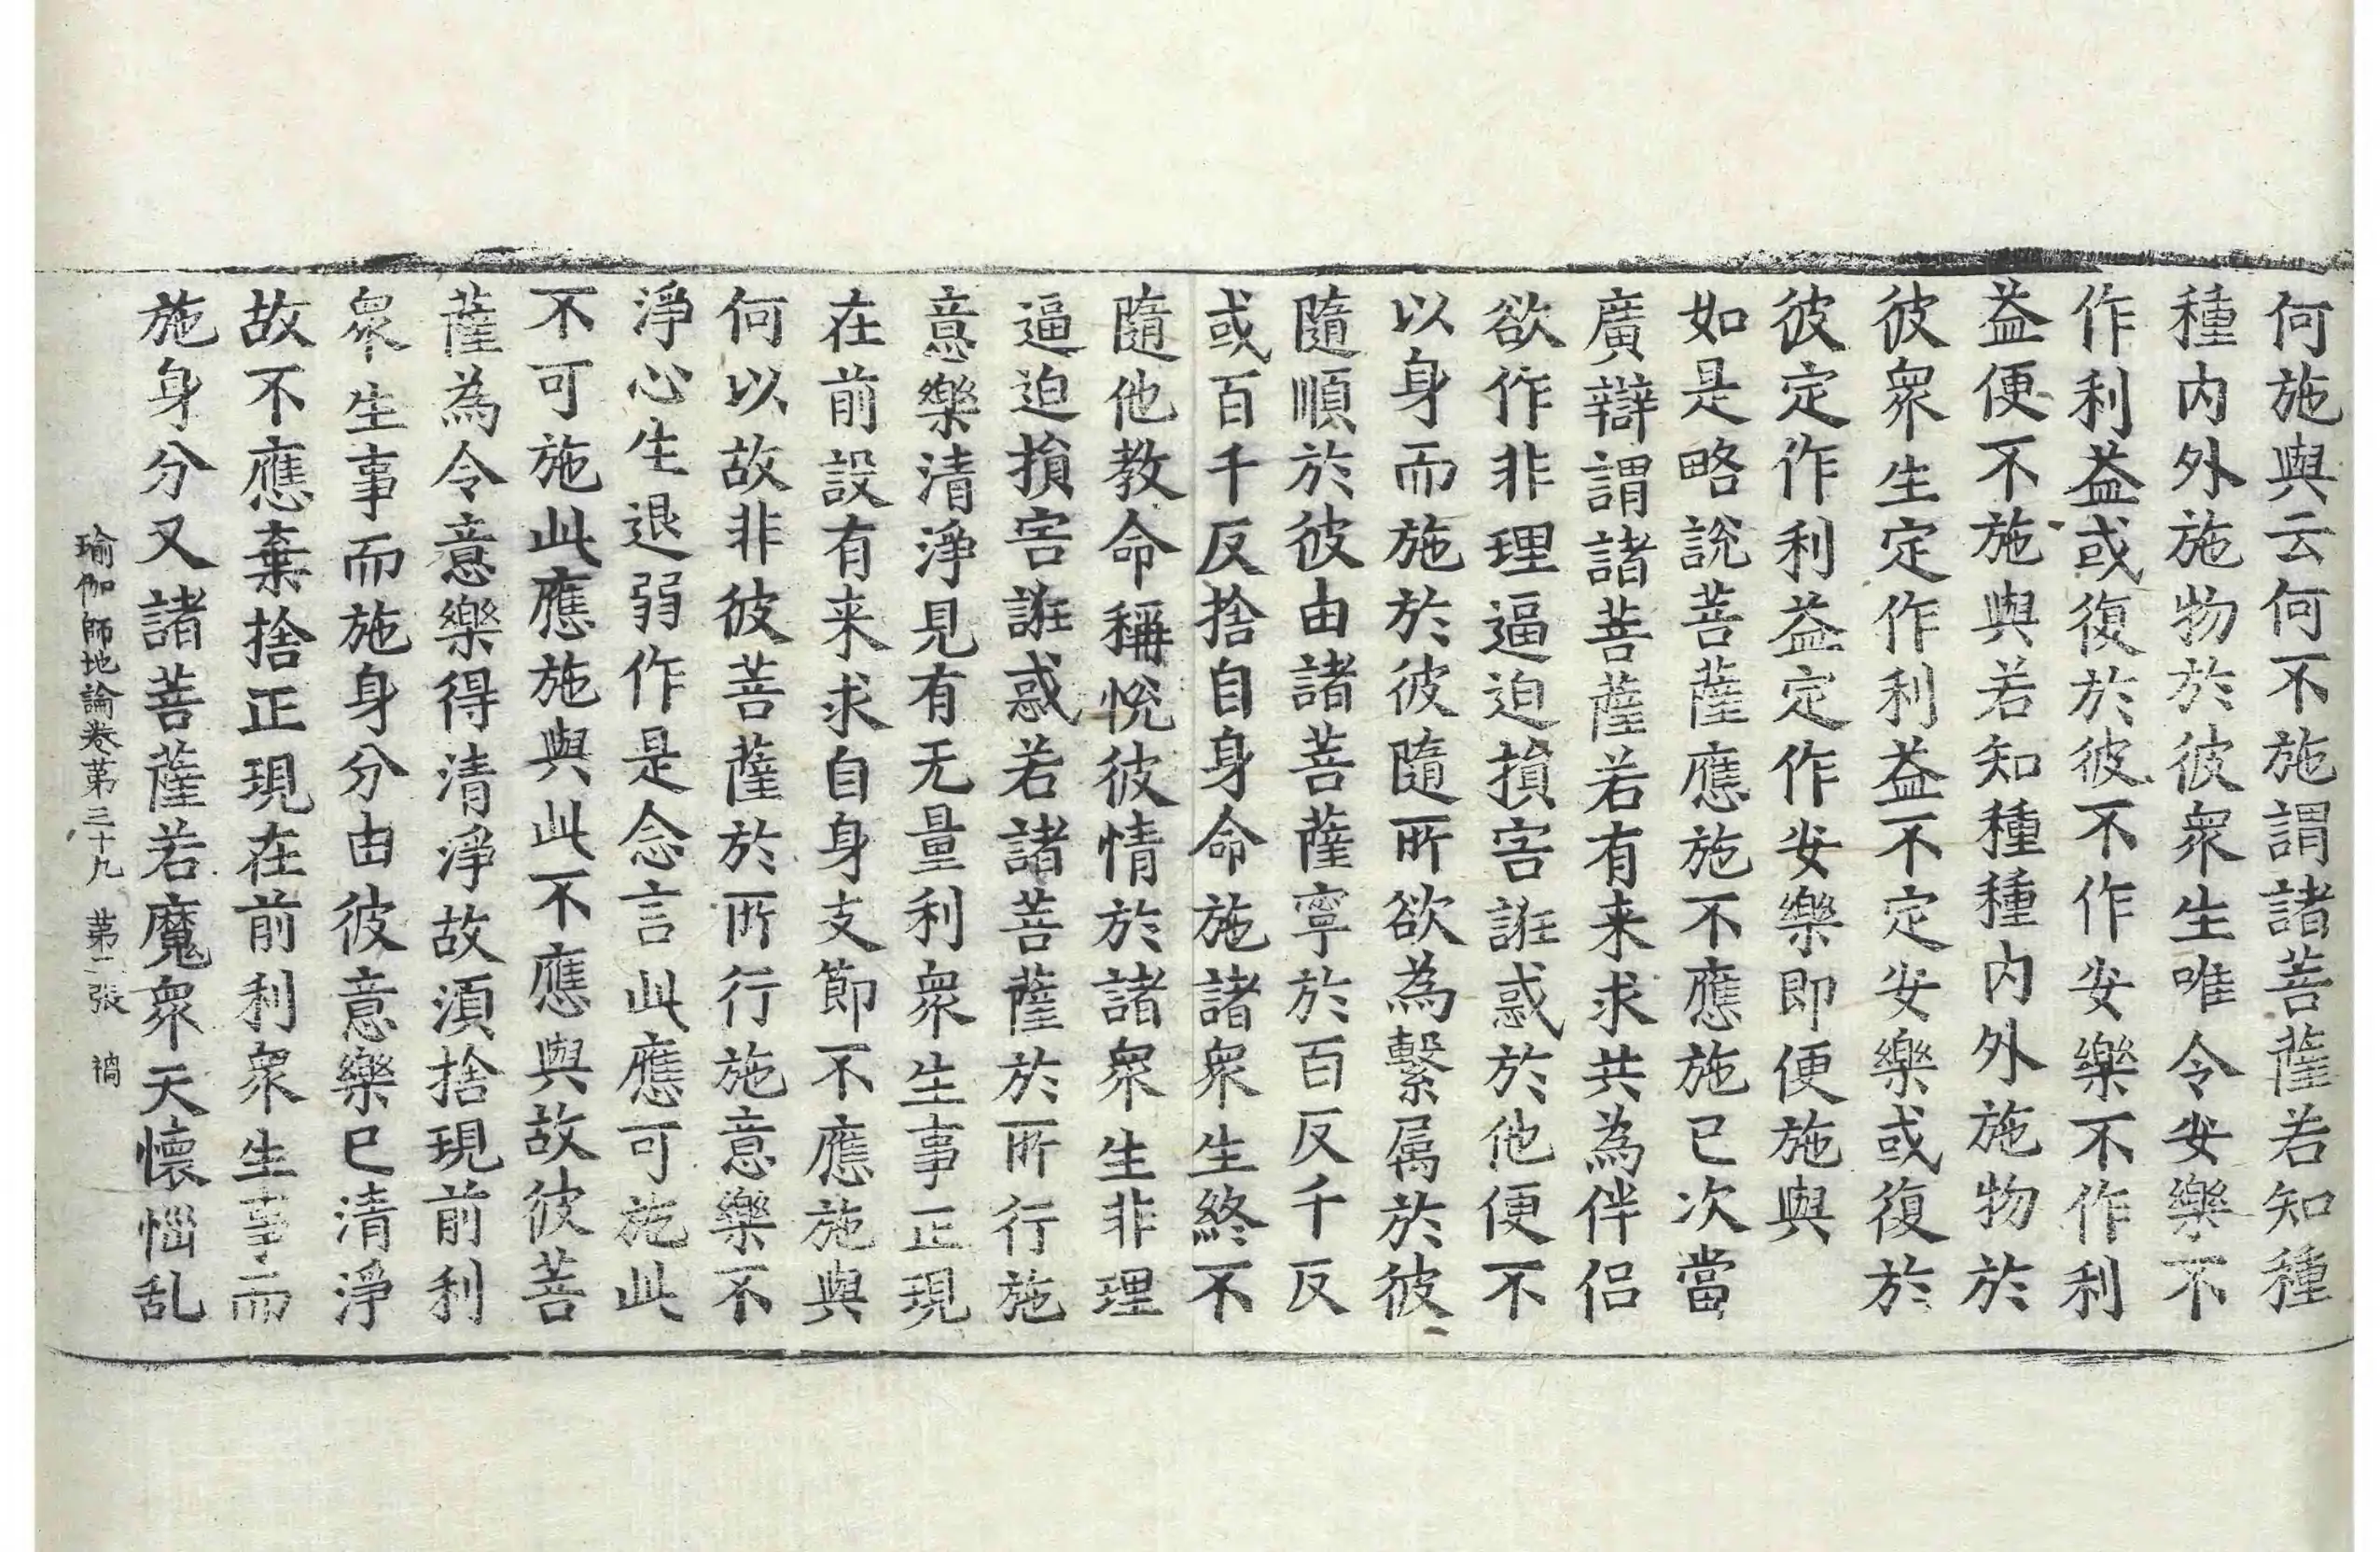 何施與云何不施謂諸菩薩若知種
種内外施物於彼衆生唯令安樂不
作利益或復於彼不作安樂不作利
益便不施與若知種種内外施物於
彼衆生定作利益不定安樂或復於
彼定作利益定作安樂即便施與
如是略說菩薩應施不應施已次當
廣辯謂諸菩薩若有来求共為伴侣
欲作非理逼迫損害誑惑於他便不
以身而施於彼隨所欲為繫属於彼
隨順於彼由諸菩薩寧於百反千反
或百千反捨自身命施諸衆生終不
隨他教命稱悅彼情於諸衆生非理
逼迫損害誑惑若諸菩薩於所行施
意樂清淨見有无量利衆生事正現
在前設有来求自身支節不應施與
何以故非彼菩薩於所行施意樂不
淨心生退弱作是念言此應可施此
不可施此應施與此不應與故彼菩
薩為令意樂得清淨故湏捨現前利
衆生事而施身分由彼意樂已清淨
故不應棄捨正現在前利衆生事而
施身分又諸菩薩若魔衆天懷惱乱
瑜伽師地論卷第三十九 第二張 禍